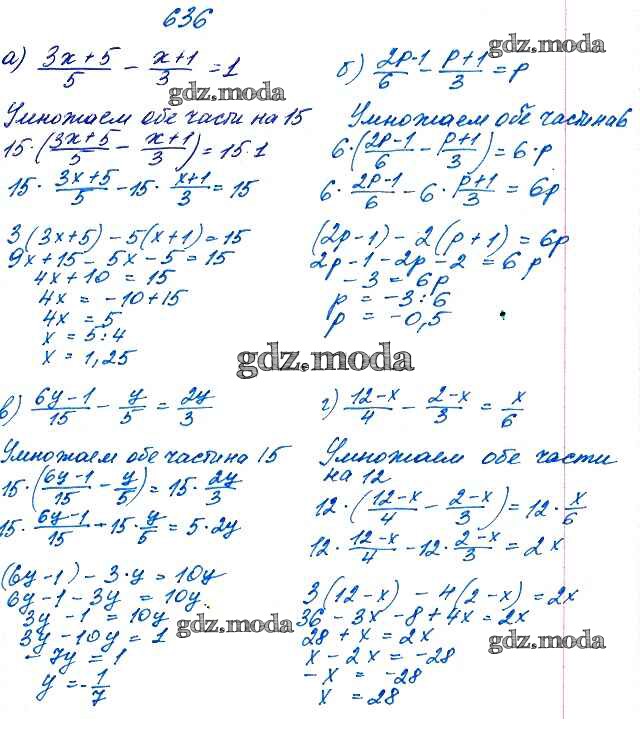 636
а) (3x+5)/5 − (x+1)/3 = 1
gdz.moda
Умножаем обе части на 15
15·((3x+5)/5 − (x+1)/3) = 15·1
15· (3x+5)/5 − 15· (x+1)/3 = 15
3(3x+5) − 5(x+1) = 15
9x+15 − 5x − 5 = 15
4x+10 = 15
4x = −10+15
4x = 5
x = 5:4
x = 1,25
gdz.moda
б) (2p−1)/6 − (p+1)/3 = p
Умножаем обе части на 6
6·((2p−1)/6 − (p+1)/3) = 6·p
6· (2p−1)/6 − 6· (p+1)/3 = 6p
(2p−1) − 2(p+1) = 6p
2p−1−2p−2 = 6p
−3 = 6p
p = −3:6
p = −0,5
gdz.moda
в) (6y−1)/15 − y/5 = 2y/3
Умножаем обе части на 15
15·((6y−1)/15 − y/5) = 15· 2y/3
15· (6y−1)/15 − 15· y/5 = 5·2y
(6y−1) − 3·y = 10y
6y−1−3y = 10y
3y −1 = 10y
3y−10y = 1
−7y = 1
y = −1/7
gdz.moda
г) (12−x)/4 − (2−x)/3 = x/6
gdz.moda
Умножаем обе части
на 12
12·((12−x)/4 − (2−x)/3) = 12· x/6
12· (12−x)/4 − 12· (2−x)/3 = 2x
3(12−x) − 4(2−x) = 2x
36 − 3x − 8 + 4x = 2x
28 + x = 2x
x − 2x = −28
−x = −28
x = 28
gdz.moda